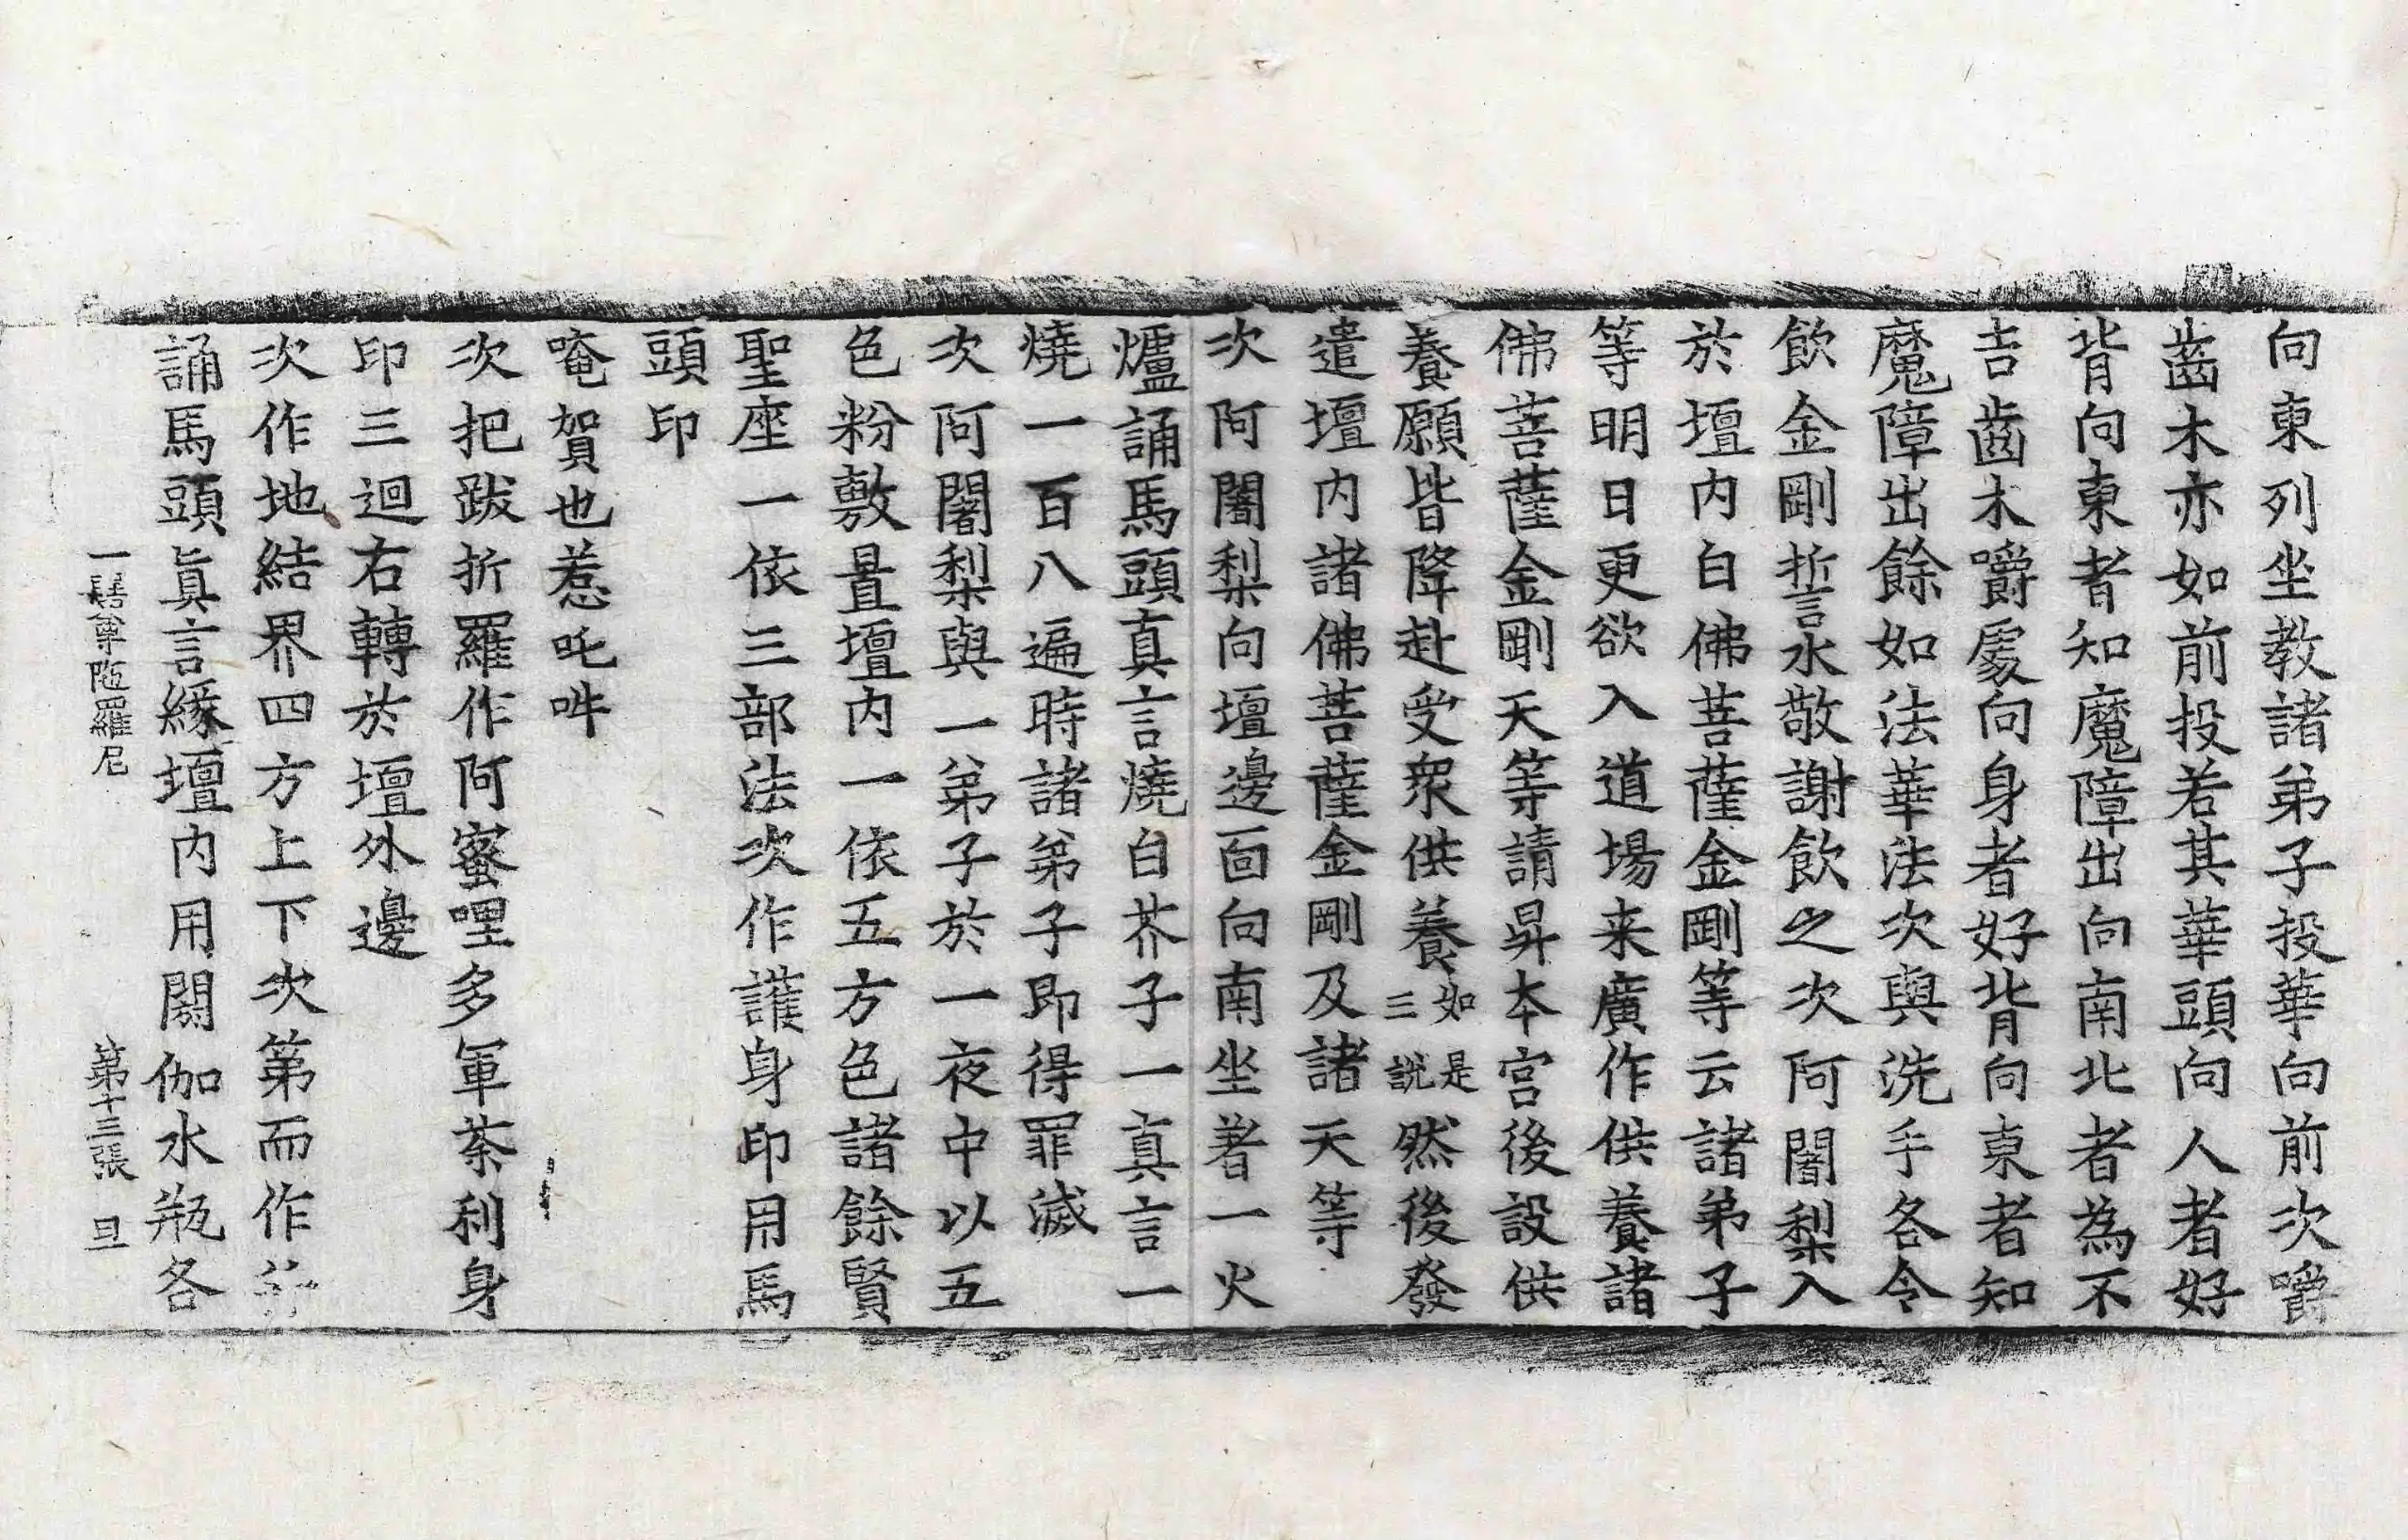 向東列坐教諸弟子投華向前次嚼
齒木亦如前投若其華頭向人者好
背向東者知魔障出向南北者為不
吉齒木嚼處向身者好背向東者知
魔障出餘如法華法次與洗手各令
飲金剛誓水敬謝飲之次阿闍梨入
於壇内白佛菩薩金剛等云諸弟子
等明日更欲入道場来廣作供養諸
佛菩薩金剛天等請昇本宫後設供
養願皆降赴受眾供養如是三說然後發
遣壇内諸佛菩薩金剛及諸天等
次阿闍梨向壇邊面向南坐著一火
爐誦馬頭真言燒白芥子一真言一
燒一百八遍時諸弟子即得罪滅
次阿闍梨與一弟子於一夜中以五
色粉敷置壇内一依五方色諸餘賢
聖座一依三部法次作護身印用馬
頭印
唵賀也惹吒吽
次把跋折羅作阿蜜哩多軍荼利身
印三迴右轉於壇外邊
次作地結界四方上下次第而作
誦馬頭眞言緣壇内用閼伽水瓶各
一髻尊陁羅尼 第十三張 旦